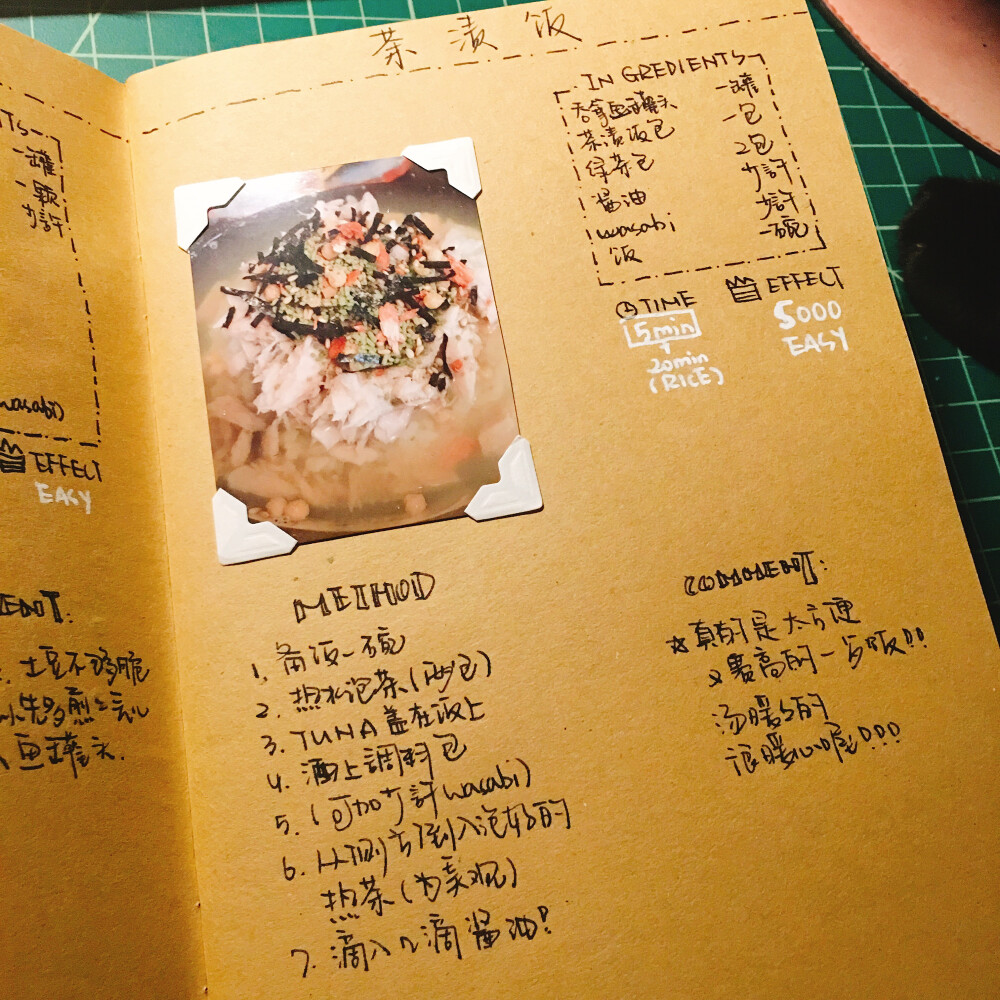 NTS
一罐
一颗
少許
wasabi)
EFFECT
EASY
ENT:
土豆不够脆
鱼罐头.
茶漬饭
INGREDIENTS
吞拿鱼罐头 一罐
茶漬饭包 一包
绿茶包 2包
醤油 少許
wasabi 少許
饭 一碗
TIME
5min
20min
(RICE)
EFFECT
5000
EASY
METHOD
1. 备饭一碗
2. 热水泡茶(两包)
3. TUNA盖在饭上
4. 洒上調料包
5. (可加少許wasabi)
6. 从侧方倒入泡好的
热茶(为美观)
7. 滴入几滴醤油!
COMMENT:
☆真的是太方便
又最高的一歩饭!!
汤暖暖的
很暖心喔!!!